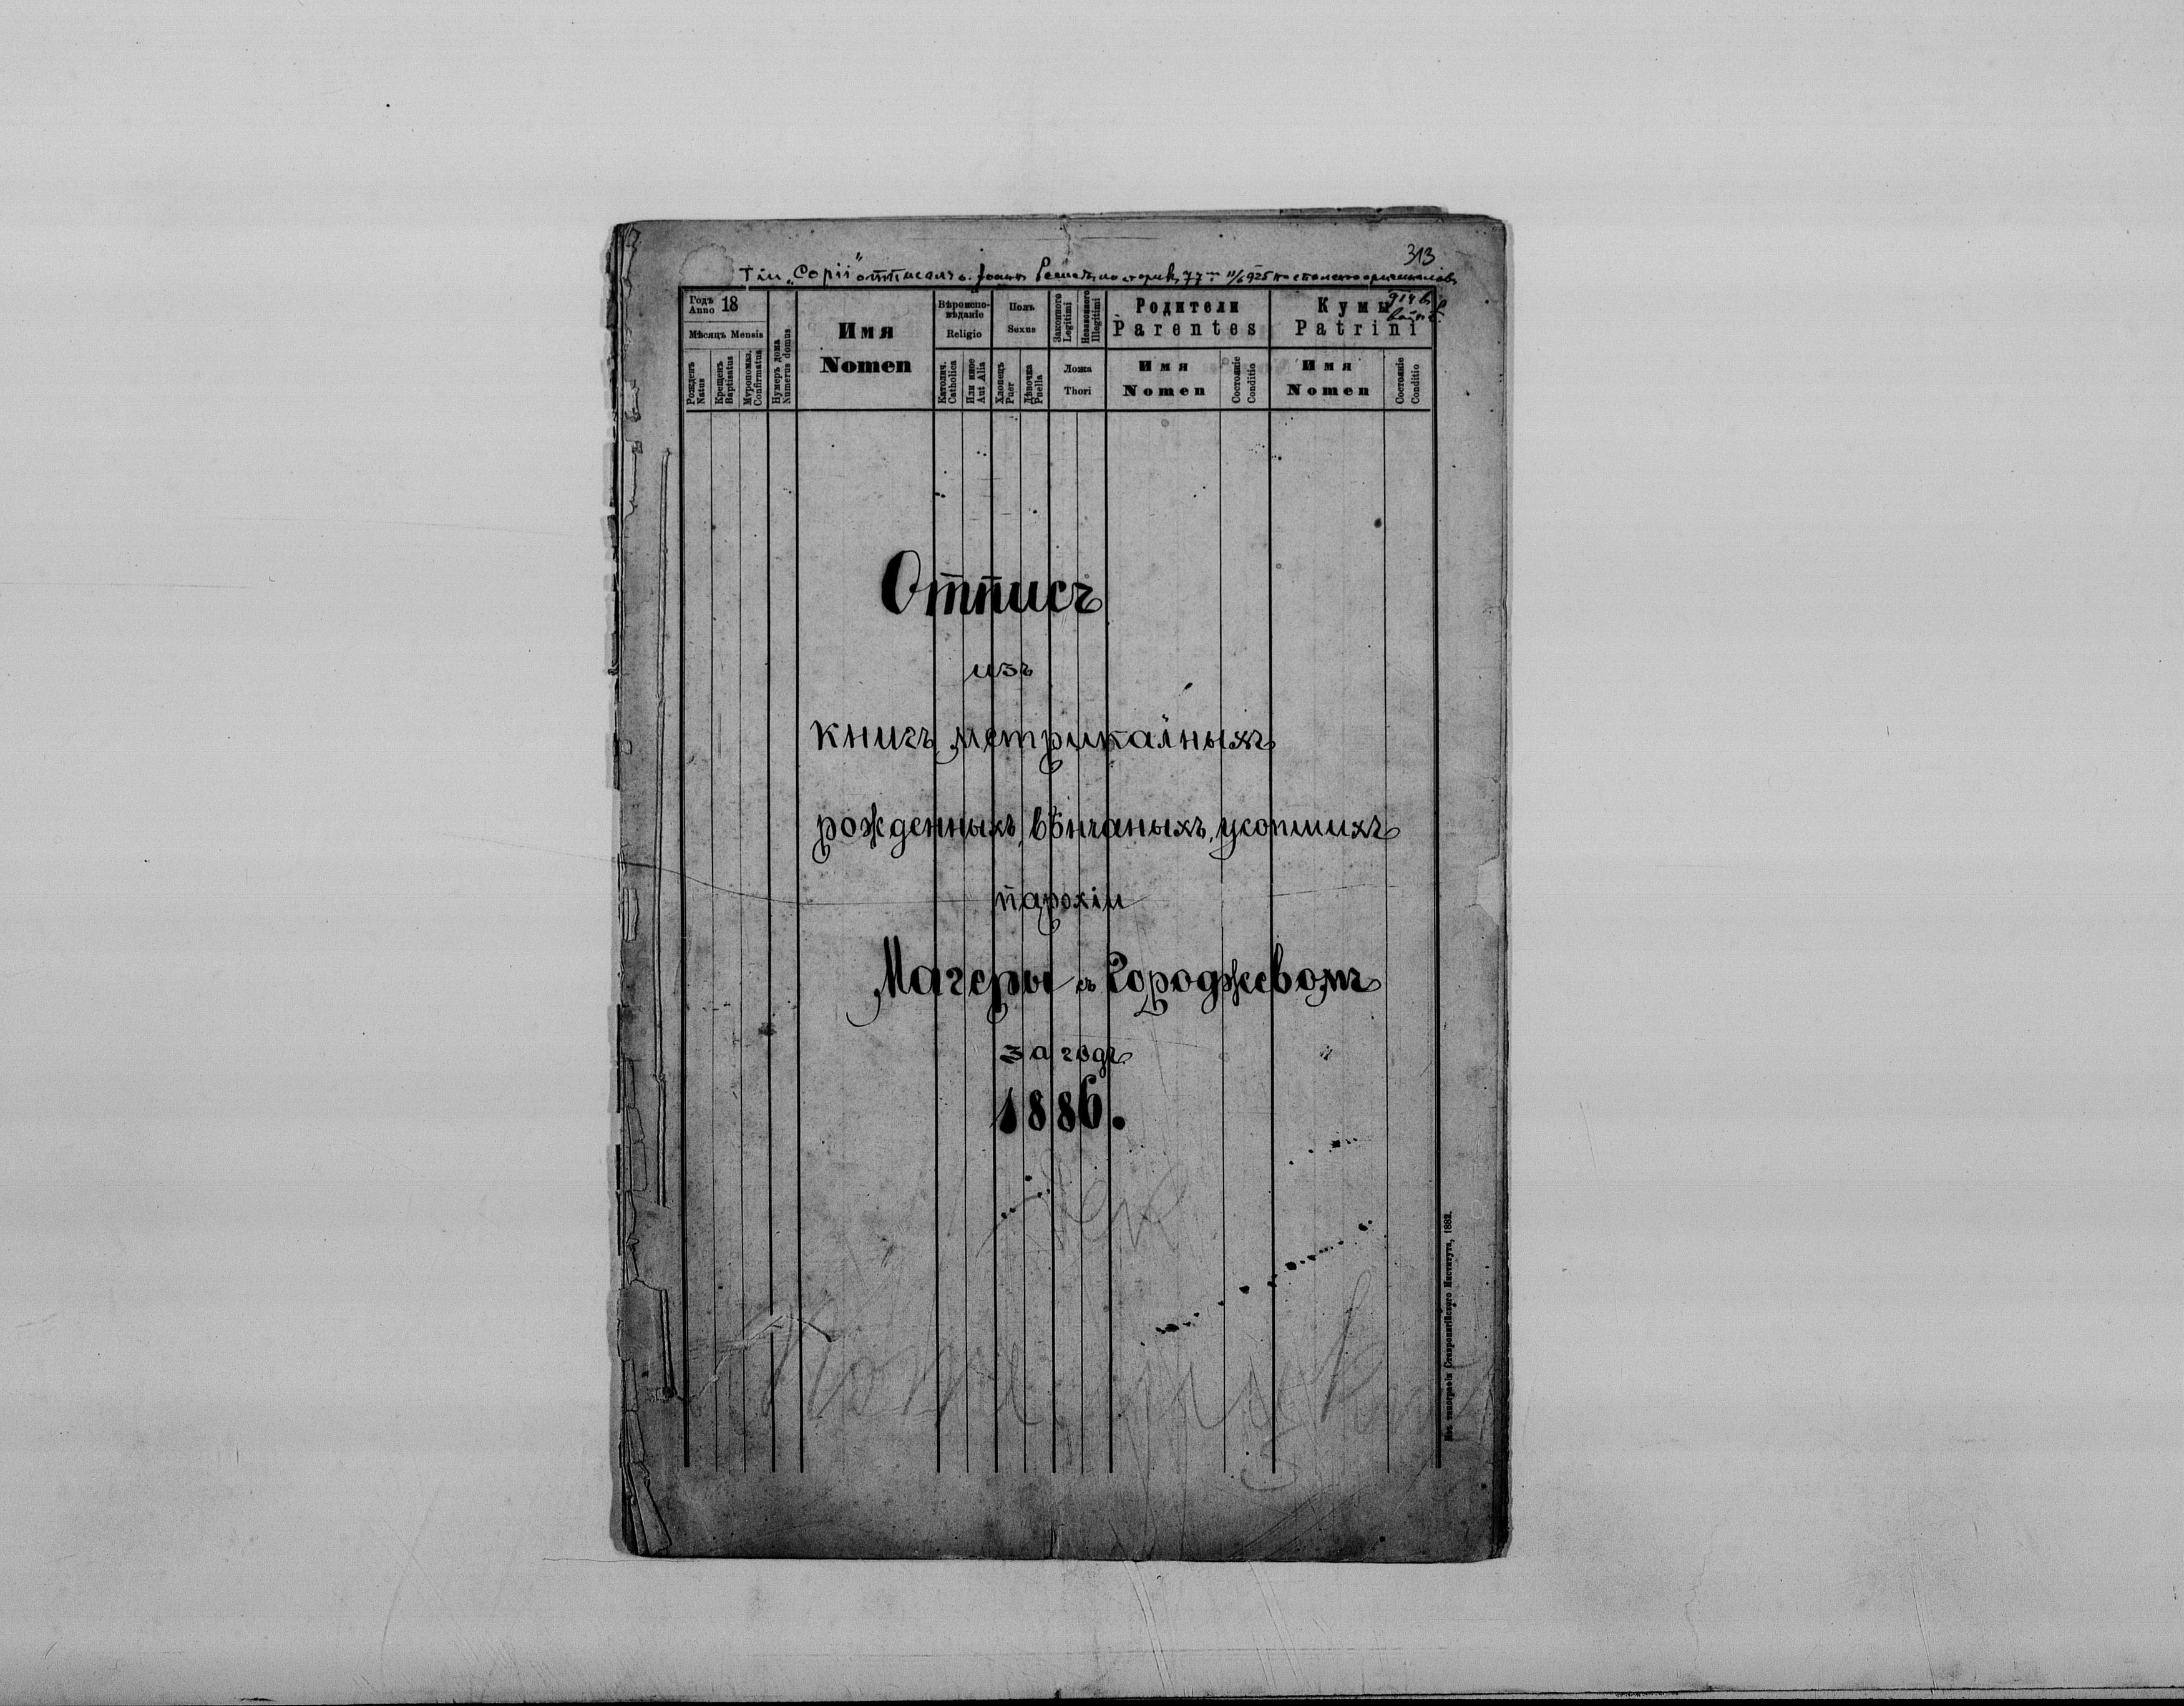 313
Тіи „Copii" отписалъ о. Іоаннъ
914 в.
Годъ 18
Anno
Мѣсяцъ Mensis
Рожденъ
Natus
Крещенъ
Baptisatus
Мѵропомаз.
Confirmatus
Нумеръ дома
Numerus domus
Имя
Nomen
Вѣроиспо-
вѣданіе
Religio
Католич.
Catholica
Или иное
Aut Alia
Полъ
Sexus
Хлопецъ
Puer
Дѣвочка
Puella
Законного
Legitimi
Незаконного
Illegitimi
Ложа
Thori
Родители
Parentes
Имя
Nomen
Состояніе
Conditio
Кумы
Patrini
Имя
Nomen
Состояніе
Conditio
Отписъ
изъ
книгъ метрикалныхъ
рожденныхъ, вѣнчаныхъ, усопшихъ
парохіи
Магеры съ Городжевомъ
за годъ
1886.
Изъ типографіи Ставропигійского Института, 1882.